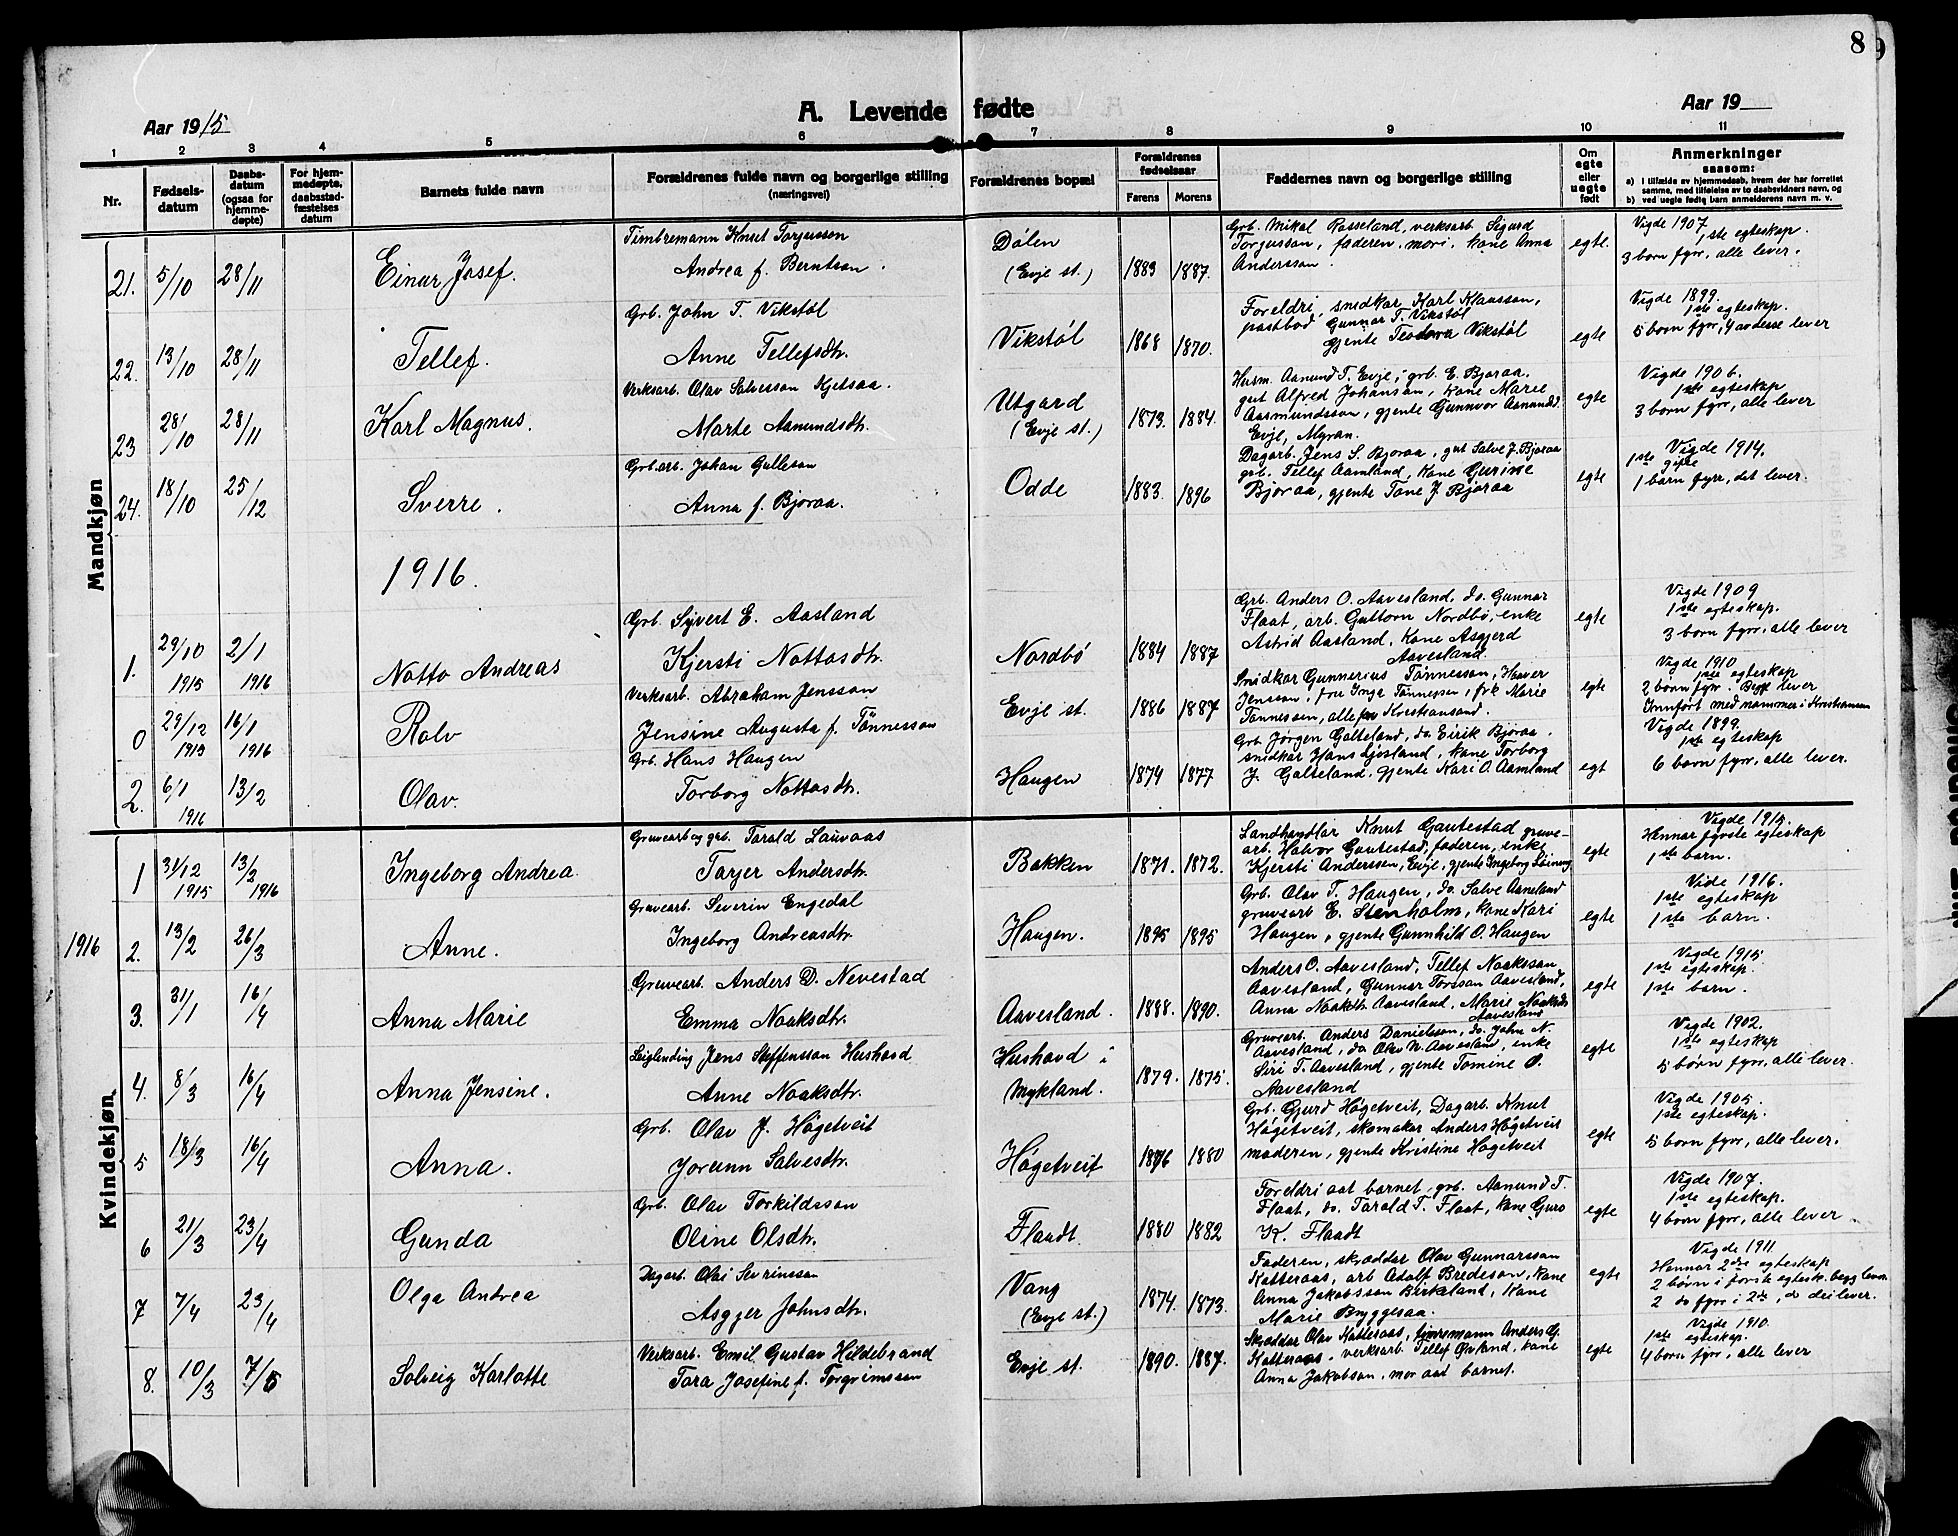 8
9
A. Levende fødte
Aar 1915
Aar 19
1 2 3 4 5 6 7 8 9 10 11
Nr.
Fødsels-datum
Daabs-datum (ogsaa for hjemme-døpte)
For hjem-medøpte, daabsstad-fæstelses datum
Barnets fulde navn
Forældrenes fulde navn og borgerlige stilling (næringsvei)
Forældrenes bopæl
Forældrenes fødselsaar
Farens
Morens
Faddernes navn og borgerlige stilling
Om egte eller uegte født
Anmerkninger saasom:
a) I tilfælde av hjemmedaab, hvem der har forrettet samme, med tilføielse av to daabsvidners navn, og
b) ved uegte fødte barn anmelderens navn m. v.
Mandkjøn
21. 5/10 28/11 Einar Josef.
Timbremann Knut Torjusson
Andrea f. Berntsen.
Dølen
(Evje st.)
1883 1887.
Grb. Mikal Rosseland, verksarb. Sigurd
Torjusson, faderen, mori, kone Anna
Anderssen.
egte.
Vigde 1907
1ste egteskap.
3 born fyrr, alle lever.
22. 13/10 28/11 Tellef.
Grb. John T. Vikstøl
Anne Tellefsdtr.
Vikstøl
1868 1870.
Foreldri, snidkar Karl Klausson,
postbod Gunnar T. Vikstøl
gjente Teodora Vikstøl
egte
Vigde 1899.
1ste egteskap.
5 born fyrr, 4 av desse lever
23 28/10 28/11 Karl Magnus.
Verksarb. Olav Salvesson Kjetsaa.
Marte Aamundsdtr.
Utgard
(Evje st.)
1873. 1884.
Husm. Aanund T. Evje, grb. E. Bjoraa.
gut Alfred Johansen, kone Marie
Aasmundsson, gjente Gunnvor Aanundsd.
Evje, Myran.
egte
Vigde 1906.
1ste egteskap
3 born fyrr, alle lever
24. 18/10 25/12 Sverre.
Grb.arb. Johan Gulleson
Anna f. Bjoraa.
Odde
1883. 1896
Dagarb. Jens S. Bjoraa, gut Salve J. Bjoraa
grb. Tellef Aamland, kone Gurine
Bjoraa, gjente Tone J. Bjoraa
egte
Vigde 1914.
1ste gifte
1 barn fyrr, det lever.
1916.
1. 29/10 1915 2/1 1916 Notto Andreas
Grb. Sjvert E. Aasland
Kjersti Nottosdtr.
Nordbø
1884 1887
Grb. Anders O. Aavesland, do. Gunnar
Flaat, arb. Guttorm Nordbø, enke
Astrid Aasland, kone Asgjerd
Aavesland
egte
Vigde 1909
1ste egteskap.
3 born fyrr, alle lever
0 29/12 1915 16/1 1916 Rolv
Verksarb. Abraham Jensson
Jensine Augusta f. Tønnesson
Evje st.
1886 1887
Snidkar Gunnerius Tønnesson, Haaver
Jensson, frue Inga Tønnessen, frk Marie
Tønnessen, alle fr Kristiansand.
egte
Vigde 1910
1ste egteskap
2 born fyrr. Begge lever
Innført med nommer i Kristiansan
2. 6/1 1916 13/2 Olav.
Grb. Hans Haugen
Torborg Nottosdtr.
Haugen
1874 1877
Grb Jørgen Galteland, do Eirik Bjoraa.
snidkar Hans Ljosland, kone Torborg
J. Galteland, gjente Kari O. Aamland
egt
Vigde 1899.
1ste egteskap
6 born fyrr, alle lever.
Kvindekjøn
1 31/12 1915 13/3 1916 Ingeborg Andrea
Gruvearb og grb. Tarald Lauvaas
Tarjer Andersdtr.
Bakken
1871. 1872.
Landhandlar Knut Gautestad, gruve-
arb. Halvor Gautestad, faderen, enke
Kjersti Anderssen, Evje, gjente Ingeborg Løining
egte
Vigde 1915.
Hennar fyrste egteskap
1ste barn.
1916
2. 13/2 26/3 Anne.
Gruvearb. Severin Engedal
Ingeborg Andreasdtr.
Haugen.
1895 1895
Grb. Olav T. Haugen, do. Salve Aaneland
gruvearb E. Stenholm, kone Kari
Haugen, gjente Gunnhild O. Haugen
egte
Vide 1916.
1ste egteskap
1ste barn.
3. 31/1 16/4 Anna Marie
Gruvearb. Anders D. Nevestad
Emma Noaksdtr.
Aavesland.
1888. 1890.
Anders O. Aavesland, Tellef Noaksson
Aavesland, Gunnar Torsson Aavesland,
Anna Noaksdtr. Aavesland, Marie Noaksdtr
Aavesland
egte
Vigde 1915.
1ste egteskap.
1ste barn.
4. 8/3 16/4 Anna Jensine.
Leiglending Jens Steffensson Hushovd
Anne Noaksdtr.
Hushovd i
Mykland.
1879. 1875.
Gruvearb. Anders Danielsson, do. John N.
Aavesland, do Olav N. Aavesland, enke
Siri T. Aavesland, gjente Tomine O.
Aavesland
egte
Vigde 1902.
1ste egteskap
5 børn fyrr, alle lever.
5 18/3 16/4 Anna.
Grb. Olav J. Høgetveit
Jorunn Salvesdtr.
Høgetveit
1876 1880
Grb. Gjurd Høgetveit, Dagarb. Knut
Høgetveit, skomakar Anders Høgetveit
moderen, gjente Kristine Høgetveit
egte
Vigde 1905.
1ste egteskap.
5 born fyrr, alle lever.
6 21/3 23/4 Gunda
Grb. Olav Torkildsson
Oline Olsdtr.
Flaadt.
1880 1882
Foreldri aat barnet, grb. Aanund T.
Flaat, do. Tarald T. Flaat, kone Guro
K. Flaadt
egte
Vigde 1907.
1ste egteskap.
4 born fyrr, alle lever.
7 7/4 23/4 Olga Andrea
Dagarb. Olai Sevrinsson
Asgjer Johnsdtr.
Vang
(Evje st.)
1874. 1873.
Faderen, skreddar Olav Gunnarsson
Katteraas, arb Adolf Bredeson, kone
Anna Jakobsson Birkeland, kone
Marie Byggesaa.
egte
Vigde 1911.
Hennar 2dre egteskap
2 børn i første egtesk. begg lever.
2 do fyrr i 2dre, do dei lever.
8. 10/3 7/5 Solveig Karlotte
Verksarb. Emil Gustav Hildebrand
Tora Josefine f. Torgrimsson
Evje st.
1890. 1887.
Skreddar Olav Katteraas, timremann Anders G.
Katteraas, verksarb. Tellef Øvland, kone
Anna Jakobson, mor aat barnet.
egte
Vigde 1910.
1ste egteskap.
4 born fyrr, alle lever